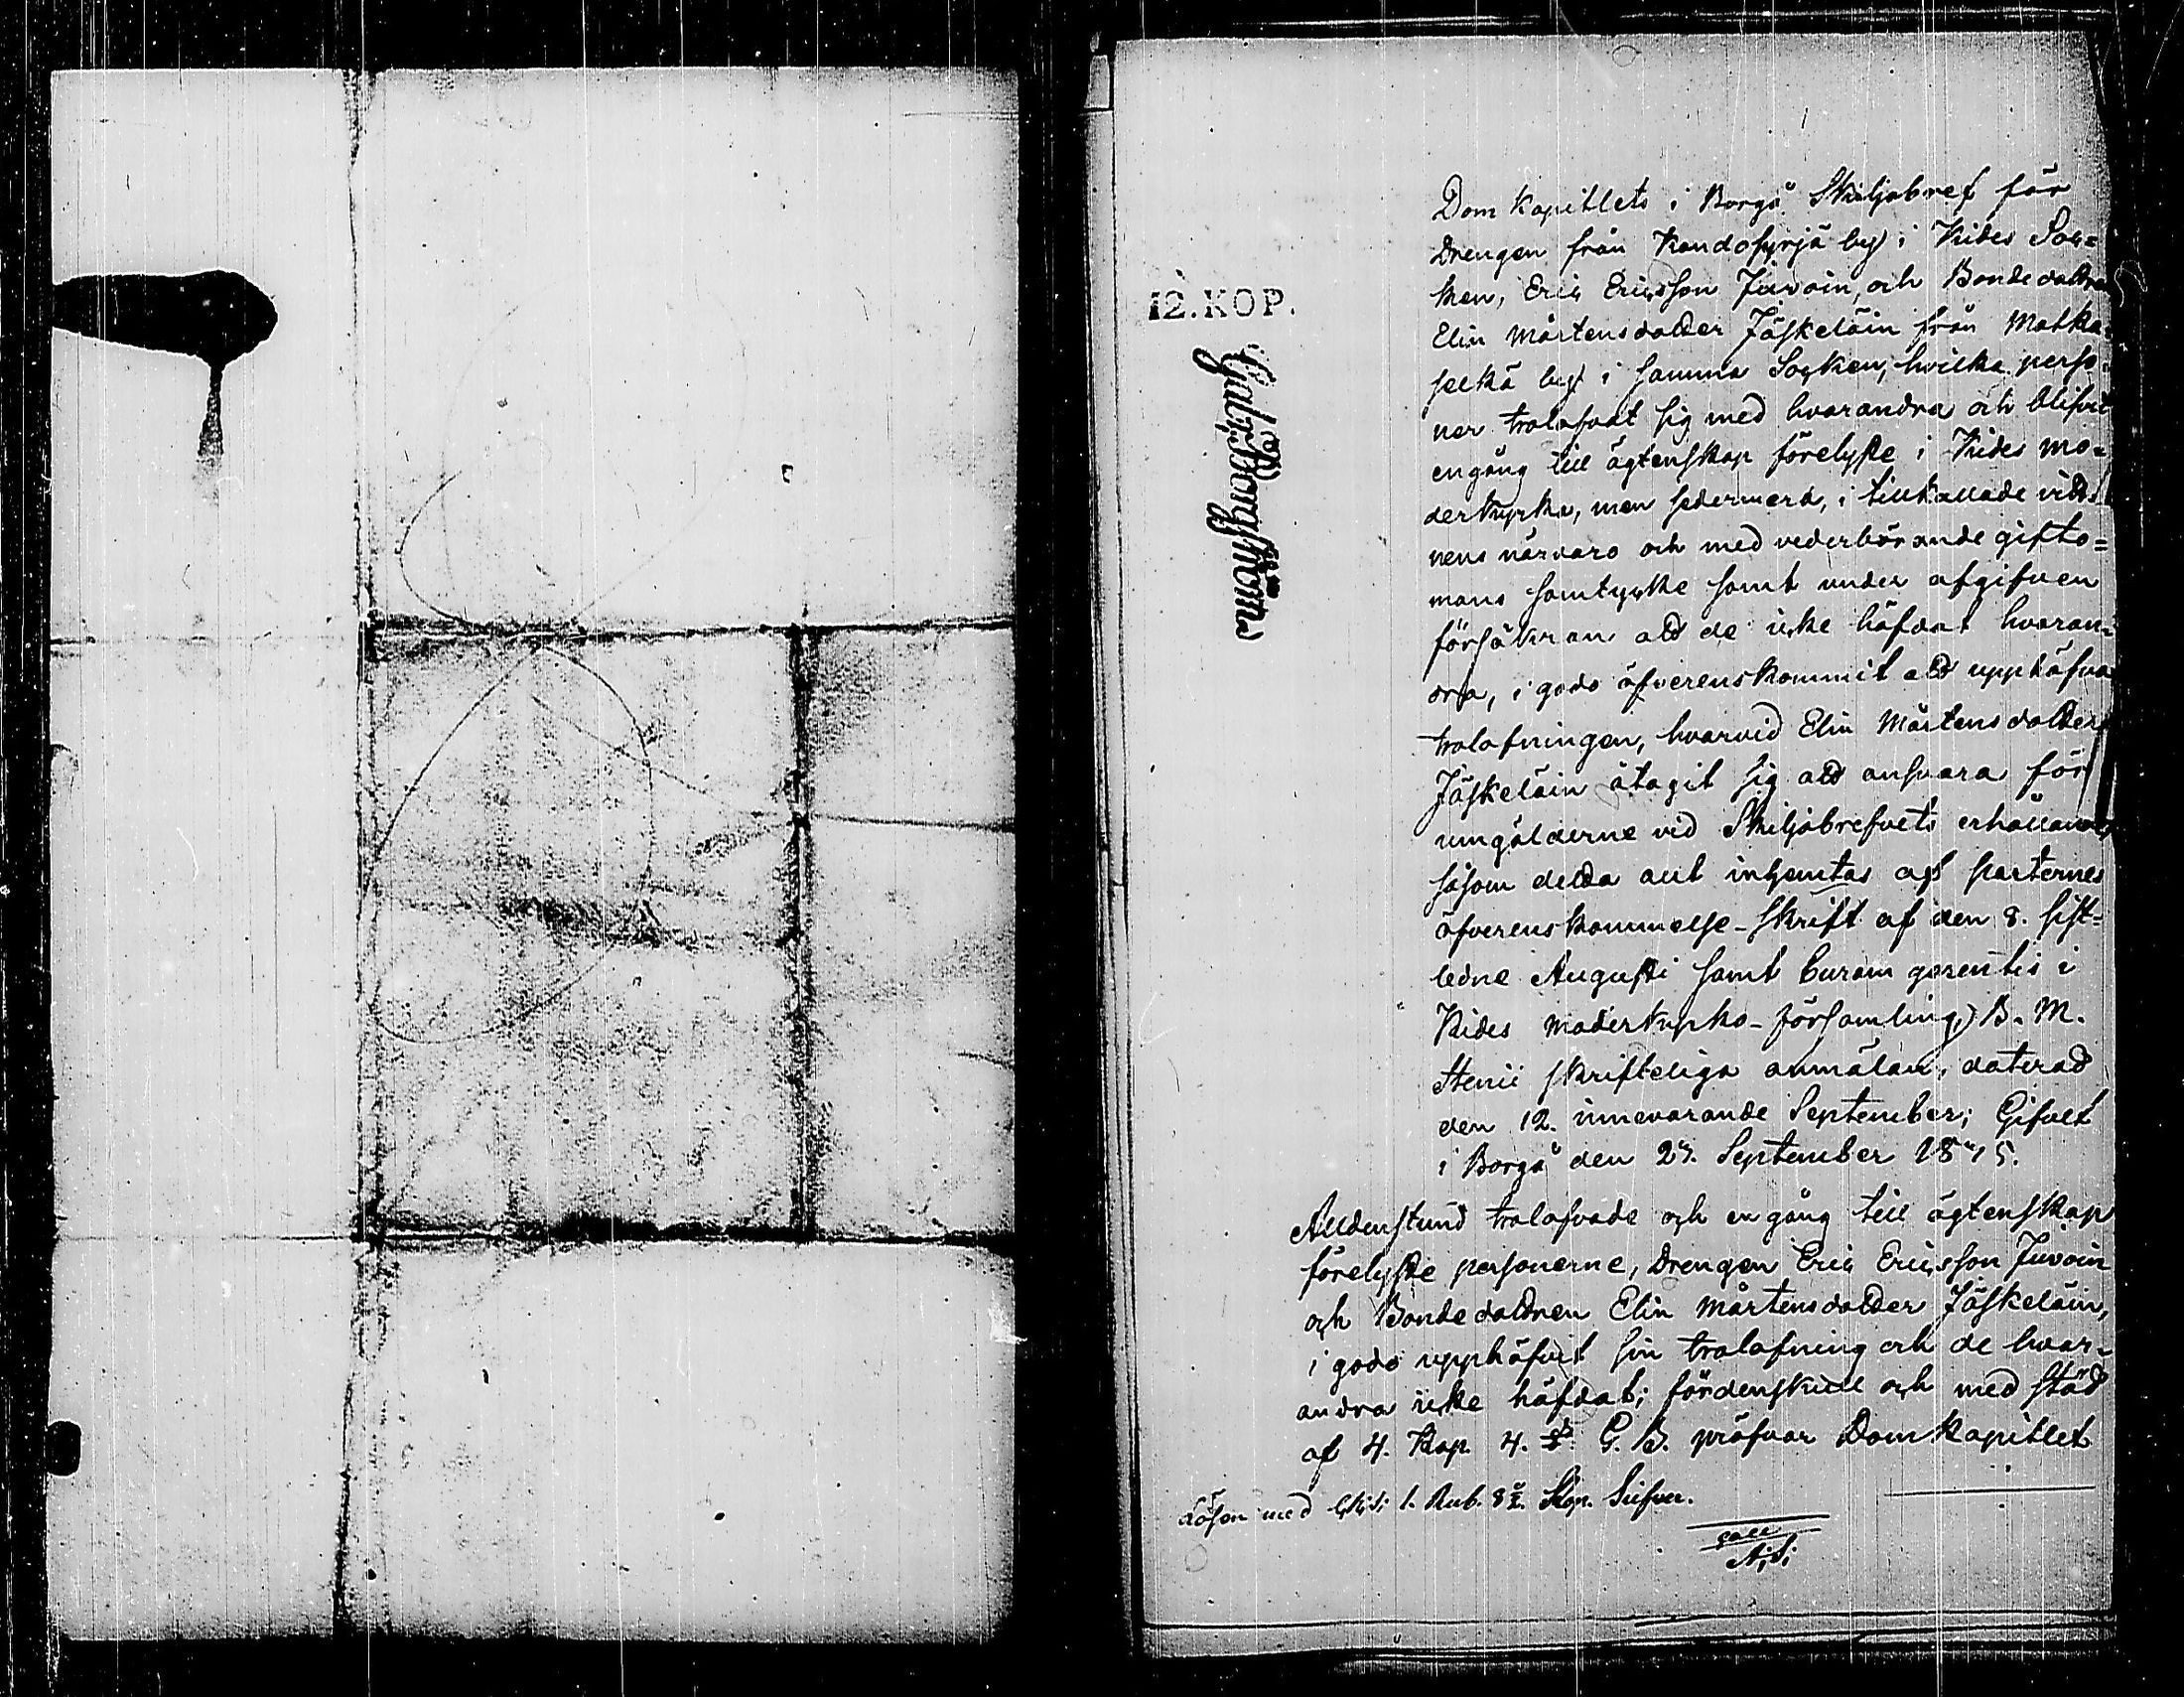 12. KOP.
Dom Kapitlets i Borgå Skiljobref för
Drengen från Kandosyrjä by i Kides Soc=
ken, Eric Ericsson Juvoin, och Bondedottren
Elin Mårtensdotter Jäskeläin från Matka=
selkä by i samma Socken, hvilka perso=
ner trolofvat sig med hvarandra och blifvit
engång till ägtenskap förelyste i Kides mo=
derkyrka, men sedermera, i tillkallade vitt=
nens närvaro och med vederbörande gifto=
mans samtycke samt under afgifven
försäkran att de icke häfdat hvaran=
dra, i godo öfverenskommit att upphäfva
trolofningen, hvarvid Elin Mårtensdotter
Jäskeläin åtagit sig att ansvara för
umgälderne vid Skiljobrefvets erhållande
såsom detta allt inhemtas af parternes
öfverenskommelse-skrift af den 8. sist=
ledne Augusti samt Curam gerentis i
Kides moderkyrko-församling, B. M.
Stenii skrifteliga anmälan, daterad
den 12. innevarande September; Gifvet
i Borgå den 27. September 1815.
Alldenstund trolofvade och en gång till ägtenskap
förelyste personerne, Drengen Eric Ericsson Juvoin
och Bondedottren Elin Mårtensdotter Jäskeläin,
i godo upphäfvit sin trolofning och de hvar=
andra icke häfdat; fördenskull och med stöd
af 4. Kap. 4. §. G. B. pröfvar Domkapitlet
Lösen med 1. Rub. 8 Kop. Silfver.